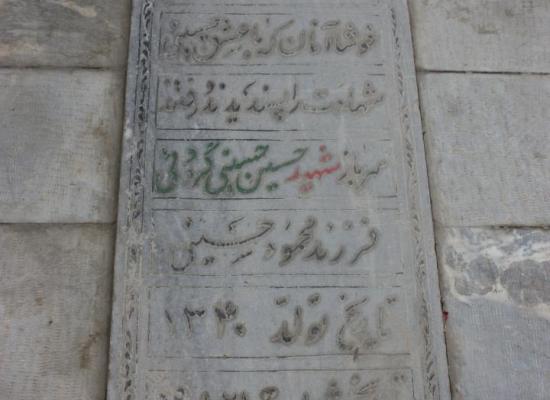 خوشا آنان که با عشق حسینی
شهادت را پسندیدند و رفتند
سرباز شهید حسین حسینی گردوئی
فرزند محمود حسینی
تاریخ تولد ۱۳۴۰